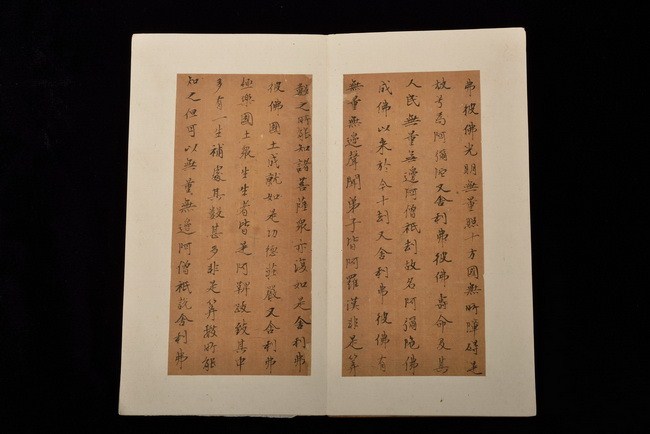 弗彼佛光明無量照十方國無所障礙是
故号為阿彌陀又舍利弗彼佛壽命及其
人民無量無邊阿僧祇劫故名阿彌陀佛
成佛以來於今十劫又舍利弗彼佛有
無量無邊聲聞弟子皆阿羅漢非是筭
數之所能知諸菩薩衆亦復如是舍利弗
彼佛國土成就如是功德莊嚴又舍利弗
極樂國土衆生生者皆是阿鞞跋致其中
多有一生補處其數甚多非是筭數所能
知之但可以無量無邊阿僧祇說舍利弗